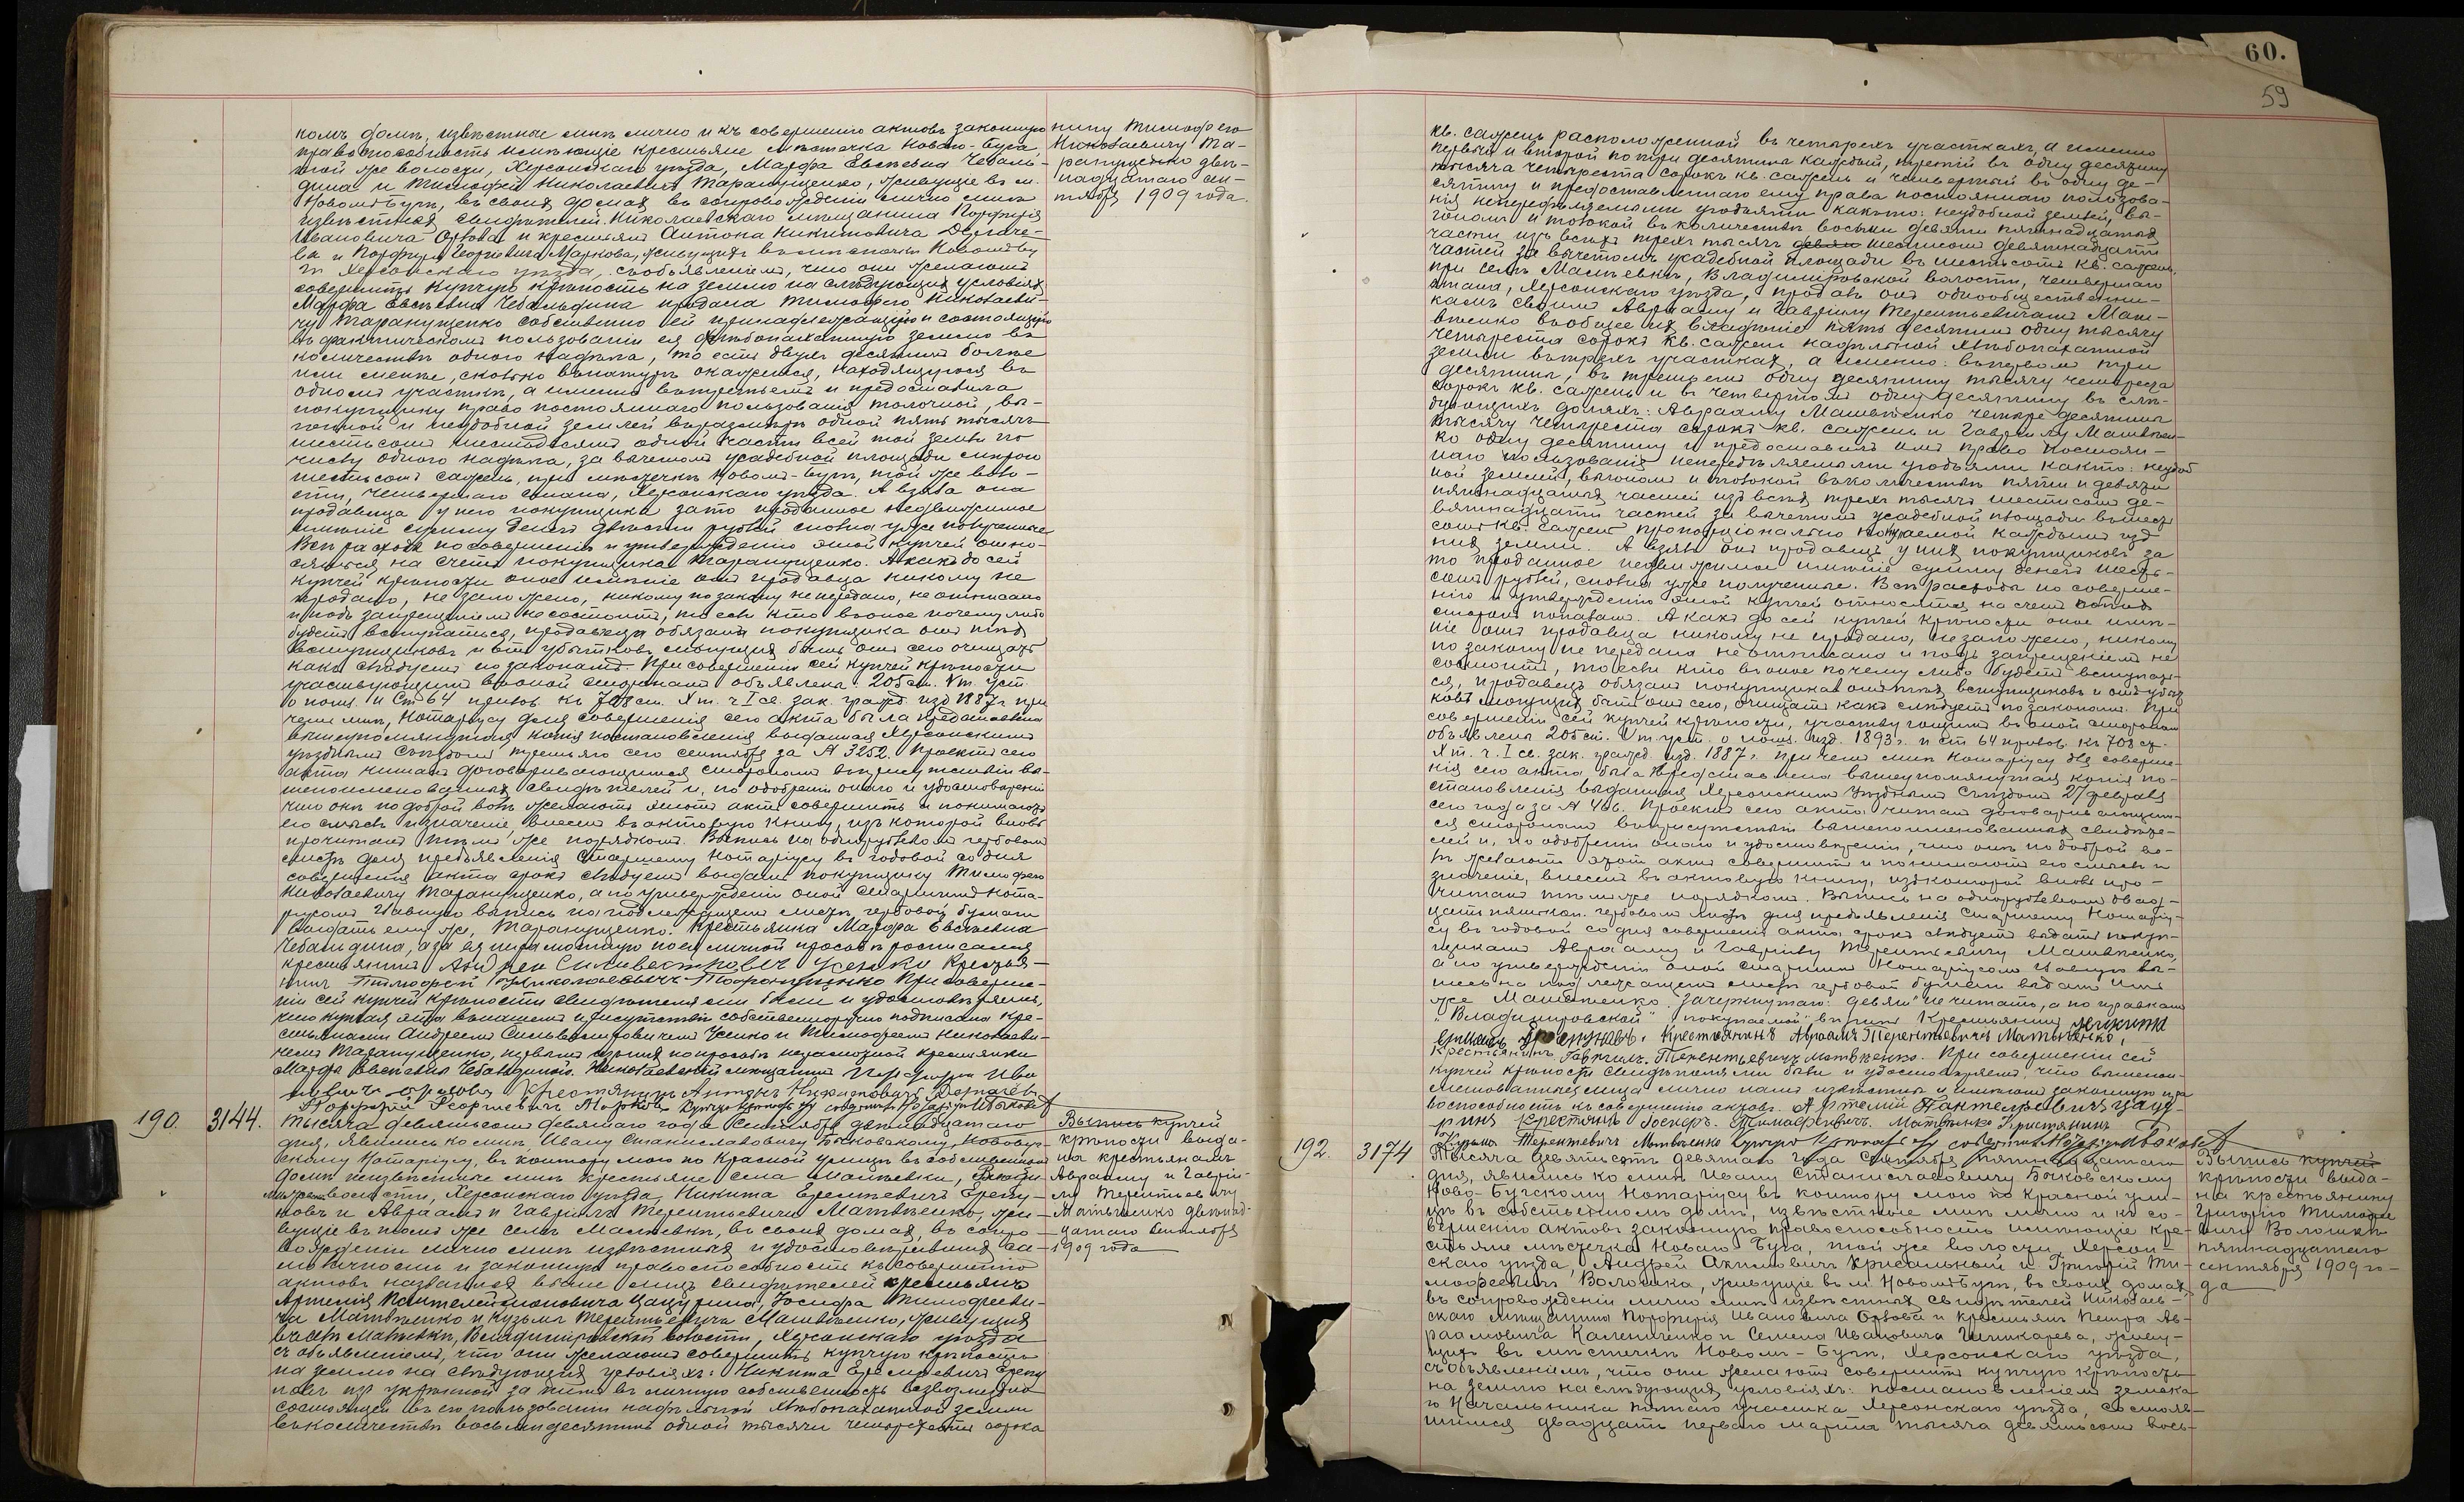 комъ домѣ, извѣстные мнѣ лично и къ совершенію актовъ законную
правоспособность имѣющіе крестьяне мѣстечка Новаго-Буга
той же волости, Херсонскаго уѣзда, Марфа Евсѣевна Чебаль-
дина и Тимофей Николаевичъ Таранущенко, живущіе въ м.
Новомъ-Бугѣ, въ своихъ домахъ, въ сопровожденіи лично мнѣ
извѣстныхъ свидѣтелей: Николаевскаго мѣщанина Порфирія
Ивановича Орлова и крестьянъ Антона Никитовича
ва и Порфирія Георгіевича Маркова, живущихъ въ мѣстечкѣ Новомъ Бу-
гѣ Херсонскаго уѣзда, съ объявленіемъ, что они желаютъ
совершить купчую крѣпость на землю на слѣдующихъ условіяхъ:
Марфа Евсѣевна Чебальдина продала Тимофею Николаеви-
чу Таранущенко собственно ей принадлежащую и состоящую
въ фактическомъ пользованіи ея хлѣбопахатную землю въ
количествѣ одного надѣла, то есть двухъ десятинъ болѣе
или менѣе, сколько въ натурѣ окажется, находящуюся въ
одномъ участкѣ, а именно въ третьемъ и предоставила
покупщику право постояннаго пользованія толочной, вы-
гонной и неудобной землей въ размѣрѣ одной пять тысячъ
шестьсотъ шестьдесятъ одной части всей той земли по
числу одного надѣла, за вычетомъ усадебной площади мѣрою
шестьсотъ сажень, при мѣстечкѣ Новомъ-Бугѣ, той же воло-
сти, четвертаго стана, Херсонскаго уѣзда. А взяла она
продавица у него покупщика за то проданное недвижимое
имѣніе сумму денегъ двѣсти рублей сполна уже полученные
Всѣ расходы по совершенію и утвержденію этой купчей отно-
сятся на счетъ покупщика Таранущенко. А какъ до сей
купчей крѣпости оное имѣніе отъ продавца никому не
продано, не заложено, никому по закону не передано, не отписано
и подъ запрещеніемъ не состоитъ, то если кто въ оное почему либо
будетъ вступаться, продавица обязана покупщика отъ тѣхъ
вступщиковъ и отъ убытковъ могущихъ быть отъ сего очищать
какъ слѣдуетъ по законамъ. При совершеніи сей купчей крѣпости
участвующимъ въ оной сторонамъ объявлена 205 ст. V т. уст.
о пошл. и ст 64 прилож. къ 708 ст. X т. ч I св. зак. гражд. изд 1887 г. при
чемъ мнѣ, Нотаріусу для совершенія сего акта была представлена
вышеупомянутая копія постановленія выданная Херсонскимъ
уѣзднымъ Съѣздомъ третьяго сего сентября за № 3252. Проектъ сего
акта читанъ договаривающимся сторонамъ въ присутствіи вы-
шепоименованныхъ свидѣтелей и, по одобреніи онаго и удостовѣреніи
что они по доброй волѣ желаютъ этотъ актъ совершить и понимаютъ
его смыслъ и значеніе, внесенъ въ актовую книгу, изъ которой вновь
прочитанъ тѣмъ же порядкомъ. Выпись на однорублевомъ гербовомъ
листѣ для предъявленія Старшему Нотаріусу въ годовой со дня
совершенія акта срокъ слѣдуетъ выдать покупщику Тимофею
Николаевичу Таранущенко, а по утвержденіи оной Старшимъ Нота-
ріусомъ главную выпись на подлежащемъ листѣ гербовой бумаги
выдать ему же, Таранущенко. Крестьянка Марфа Евсѣевна
Чебальдина, а за ея неграмотную по ея личной просьбѣ росписался
крестьянинъ Андрей Силивестровичъ Усенко Крестья-
нинъ Тимофей Николаевичъ Таронущенко При соверше-
ніи сей купчей крѣпости свидѣтелями были и удостовѣряемъ,
что купчая эта въ нашемъ присутствіи собственноручно подписана кре-
стьянами Андреемъ Сильвестровичемъ Усенко и Тимофеемъ Николаеви-
чемъ Таранущенко, первымъ изъ нихъ по просьбѣ неграмотной крестьянки
Марфы Евсѣевны Чебальдиной. Николаевскій мѣщанинъ Порфирій Ива
новичъ Орловъ Крестянинъ Антонъ Никитовичъ
Порфирій Георгіевичъ Марковъ Купчую крѣпость эту совершилъ Нотаріусъ Быковскій
нину Тимофею
Николаевичу Та-
ранущенко двѣ-
надцатаго сен-
тября 1909 года.
190. 3144. Тысяча девятьсотъ девятаго года Сентября двѣнадцатаго
дня, явились ко мнѣ, Ивану Станиславовичу Быковскому, Новобуг-
скому Нотаріусу, въ контору мою по Красной улицѣ въ собственномъ
домѣ неизвѣстные мнѣ крестьяне села Матвѣевки, Влади-
мировской волости, Херсонскаго уѣзда, Никита Еремѣевичъ Ерепу-
новъ и Авраамъ и Гавріилъ Терентьевичи Матвѣенко, жи-
вущіе въ томъ же селѣ Матвѣевкѣ, въ своихъ домахъ, въ сопро-
вожденіи лично мнѣ извѣстныхъ и удостовѣрившихъ са-
моличность и законную правоспособность къ совершенію
актовъ названныхъ выше лицъ свидѣтелей крестьянъ
Артемія Пантелеймоновича Цацурина, Іосифа Тимофееви-
ча Матвѣенко и Кузьмы Терентьевича Матвѣенко, живущихъ
въ селѣ Матвѣевкѣ, Владимировской волости, Херсонскаго уѣзда
съ объявленіемъ, что они желаютъ совершить купчую крѣпость
на землю на слѣдующихъ условіяхъ: Никита Еремѣевичъ Ерепу
новъ изъ укрѣпленной за нимъ въ личную собственность безвозмездно
состоящей въ его пользованіи надѣльной хлѣбопахатной земли
въ количествѣ восьми десятинъ одной тысячи четырехсотъ сорока
Выпись купчей
крѣпости выда-
на крестьянамъ
Аврааму и Гаврі-
лу Терентьевичу
Матвѣенко двѣнад-
цатаго Сентября
1909 года
60.
59
кв. сажень расположенной въ четырехъ участкахъ, а именно
первый и второй по три десятины каждый, третій въ одну десятину
тысяча четыреста сорокъ кв. сажень и четвертый въ одну де-
сятину и предоставленнаго ему права постояннаго пользова-
нія непередѣляемыми угодьями какъ то: неудобной землей, вы-
гономъ и толокой въ количествѣ восьми девяти пятнадцатыхъ
части изъ всѣхъ трехъ тысячъ девян шестисотъ девятнадцати
частей за вычетомъ усадебной площади въ шестьсотъ кв. сажень,
при селѣ Матвѣевкѣ, Владимировской волости, четвертаго
стана, Херсонскаго уѣзда, продалъ онъ однообщественни-
камъ своимъ Аврааму и Гавріилу Терентьевичамъ Мат-
вѣенко въ общее ихъ владѣніе пять десятинъ одну тысячу
четыреста сорокъ кв. сажень надѣльной хлѣбопахатной
земли въ трехъ участкахъ, а именно: въ первомъ три
десятины, въ третьемъ одну десятину тысячу четыреста
сорокъ кв. сажень и въ четвертомъ одну десятину въ слѣ-
дующихъ доляхъ: Аврааму Матвѣенко четыре десятины
тысячу четыреста сорокъ кв. сажень и Гавріилу Матвѣен-
ко одну десятину и предоставилъ имъ право постоян-
наго пользованія непередѣляемыми угодьями какъ то: неудоб
ной землей, выгономъ и толокой въ количествѣ пяти и девяти
пятнадцатыхъ частей изъ всѣхъ трехъ тысячъ шестисотъ де-
вятнадцати частей за вычетомъ усадебной площади въ шесть
сотъ кв. сажень пропорціонально покупаемой каждымъ изъ
нихъ земли. А взялъ онъ продавецъ у нихъ покупщиковъ за
то проданное недвижимое имѣніе сумму денегъ шесть-
сотъ рублей, сполна уже полученные. Всѣ расходы по соверше-
нію и утвержденію этой купчей относятся на счетъ обѣихъ
сторонъ пополамъ. А какъ до сей купчей крѣпости оное имѣ-
ніе отъ продавца никому не продано, не заложено, никому
по закону не передано не отписано и подъ запрещеніемъ не
состоитъ, то если кто въ оное почему либо будетъ вступать-
ся, продавецъ обязанъ покупщиковъ отъ тѣхъ вступщиковъ и отъ убыт
ковъ могущихъ быть отъ сего, очищать какъ слѣдуетъ по законамъ. При
совершеніи сей купчей крѣпости, участвующимъ въ оной сторонамъ
объявлена 205 ст. V т. уст. о пошл. изд. 1893 г. и ст 64 прилож. къ 708 ст.
X т. ч. I св. зак. гражд. изд. 1887 г. при чемъ мнѣ Нотаріусу для соверше-
нія сего акта была представлена вышеупомянутая копія по-
становленія выданная Херсонскимъ Уѣзднымъ Съѣздомъ 27 февраля
сего года за № 466. Проектъ сего акта читанъ договаривающим-
ся сторонамъ въ присутствіи вышепоименованныхъ свидѣте-
лей и, по одобреніи онаго и удостовѣреніи, что они по доброй во-
лѣ желаютъ этотъ актъ совершить и понимаютъ его смыслъ и
значеніе, внесенъ въ актовую книгу, изъ которой вновь про-
читанъ тѣмъ же порядкомъ. Выпись на однорублевомъ двад-
цати пяти коп. гербовомъ листѣ для предъявленія Старшему Нотаріу-
су въ годовой со дня совершенія акта срокъ слѣдуетъ выдать покуп-
щикамъ Аврааму и Гавріилу Терентьевичу Матвѣенко,
а по утвержденіи оной Старшимъ Нотаріусомъ главную вы-
пись на подлежащемъ листѣ гербовой бумаги выдать имъ
же Матвѣенко. Зачеркнутое: „девян" не читать, а по правкамъ
„Владимировской" „покупаемой" вѣрить Крестьянинъ Никита
Крестьянинъ Авраамъ Терентьевичъ Матвѣенко,
Крестьянинъ Гавріилъ Терентьевичъ Матвѣенко. При совершеніи сей
купчей крѣпости свидѣтелями были и удостовѣряемъ, что вышепои-
менованныя лица лично намъ извѣстны и имѣютъ законную пра
воспособность къ совершенію актовъ. Артемій Пантелеевичъ Цацу-
ринъ Крестянъ Іосифъ Тимофѣевичъ Матвѣенко Кристянинъ
Кузьма Терентевичъ Матвѣенко Купчую крѣпость эту совершилъ Нотаріусъ Быковскій
192. 3174 Тысяча девятьсотъ девятаго года Сентября пятнадцатаго
дня, явились ко мнѣ Ивану Станиславовичу Быковскому
Ново-Бугскому Нотаріусу въ контору мою по Красной ули-
цѣ въ собственномъ домѣ, извѣстные мнѣ лично и къ со-
вершенію актовъ законную правоспособность имѣющіе кре-
стьяне мѣстечка Новаго Буга, той же волости, Херсон-
скаго уѣзда, Андрей Акимовичъ Крисальный и Григорій Ти-
мофеевичъ Волошка, живущіе въ м. Новомъ Бугѣ, въ своихъ домахъ,
въ сопровожденіи лично мнѣ извѣстныхъ свидѣтелей Николаев-
скаго мѣщанина Порфирія Ивановича Орлова и крестьянъ Петра Ав-
раамовича Калениченко и Семена Ивановича Гишкарева, живу-
щихъ въ мѣстечкѣ Новомъ-Бугѣ, Херсонскаго уѣзда,
съ объявленіемъ, что они желаютъ совершить купчую крѣпость
на землю на слѣдующихъ условіяхъ: постановленіемъ Земска-
го Начальника пятаго участка Херсонскаго уѣзда, состояв-
шимся двадцать перваго марта тысяча девятьсотъ вось-
Выпись купчей
крѣпости выда-
на крестьянину
Григорію Тимофее
вичу Волошкѣ
пятнадцатаго
сентября 1909 го-
да